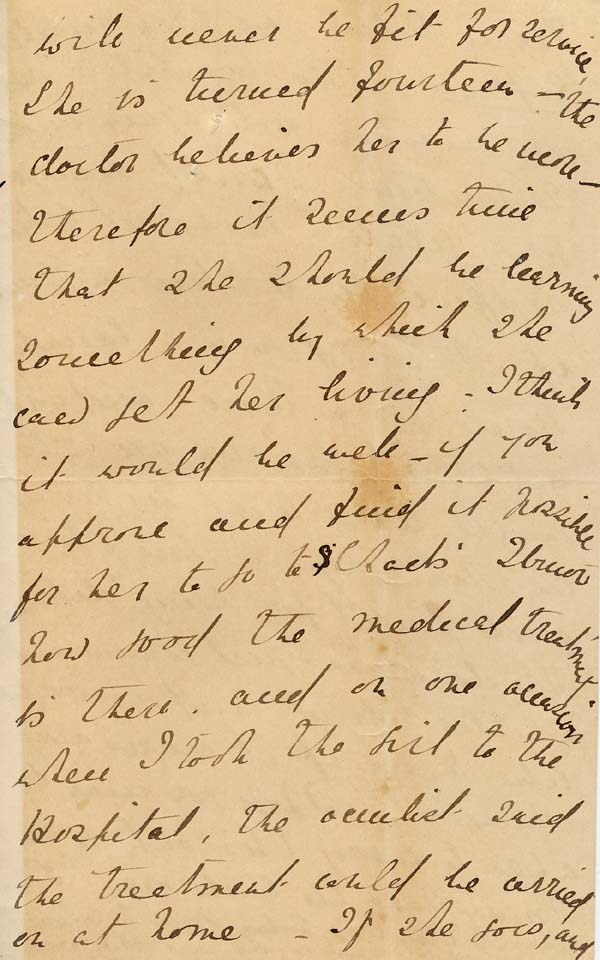 will never be fit for service,
She is turned fourteen – the
doctor believes her to be more –
therefore it seems time
that she should be learning
something by which she
can get her living – I think
it would be well – if you
approve and find it possible
for her to go to I know
how good the medical treatment
is there. and on one occasion
when I took the girl to the
Hospital, the oculist said
the treatment could be carried
on at home – If she goes, and